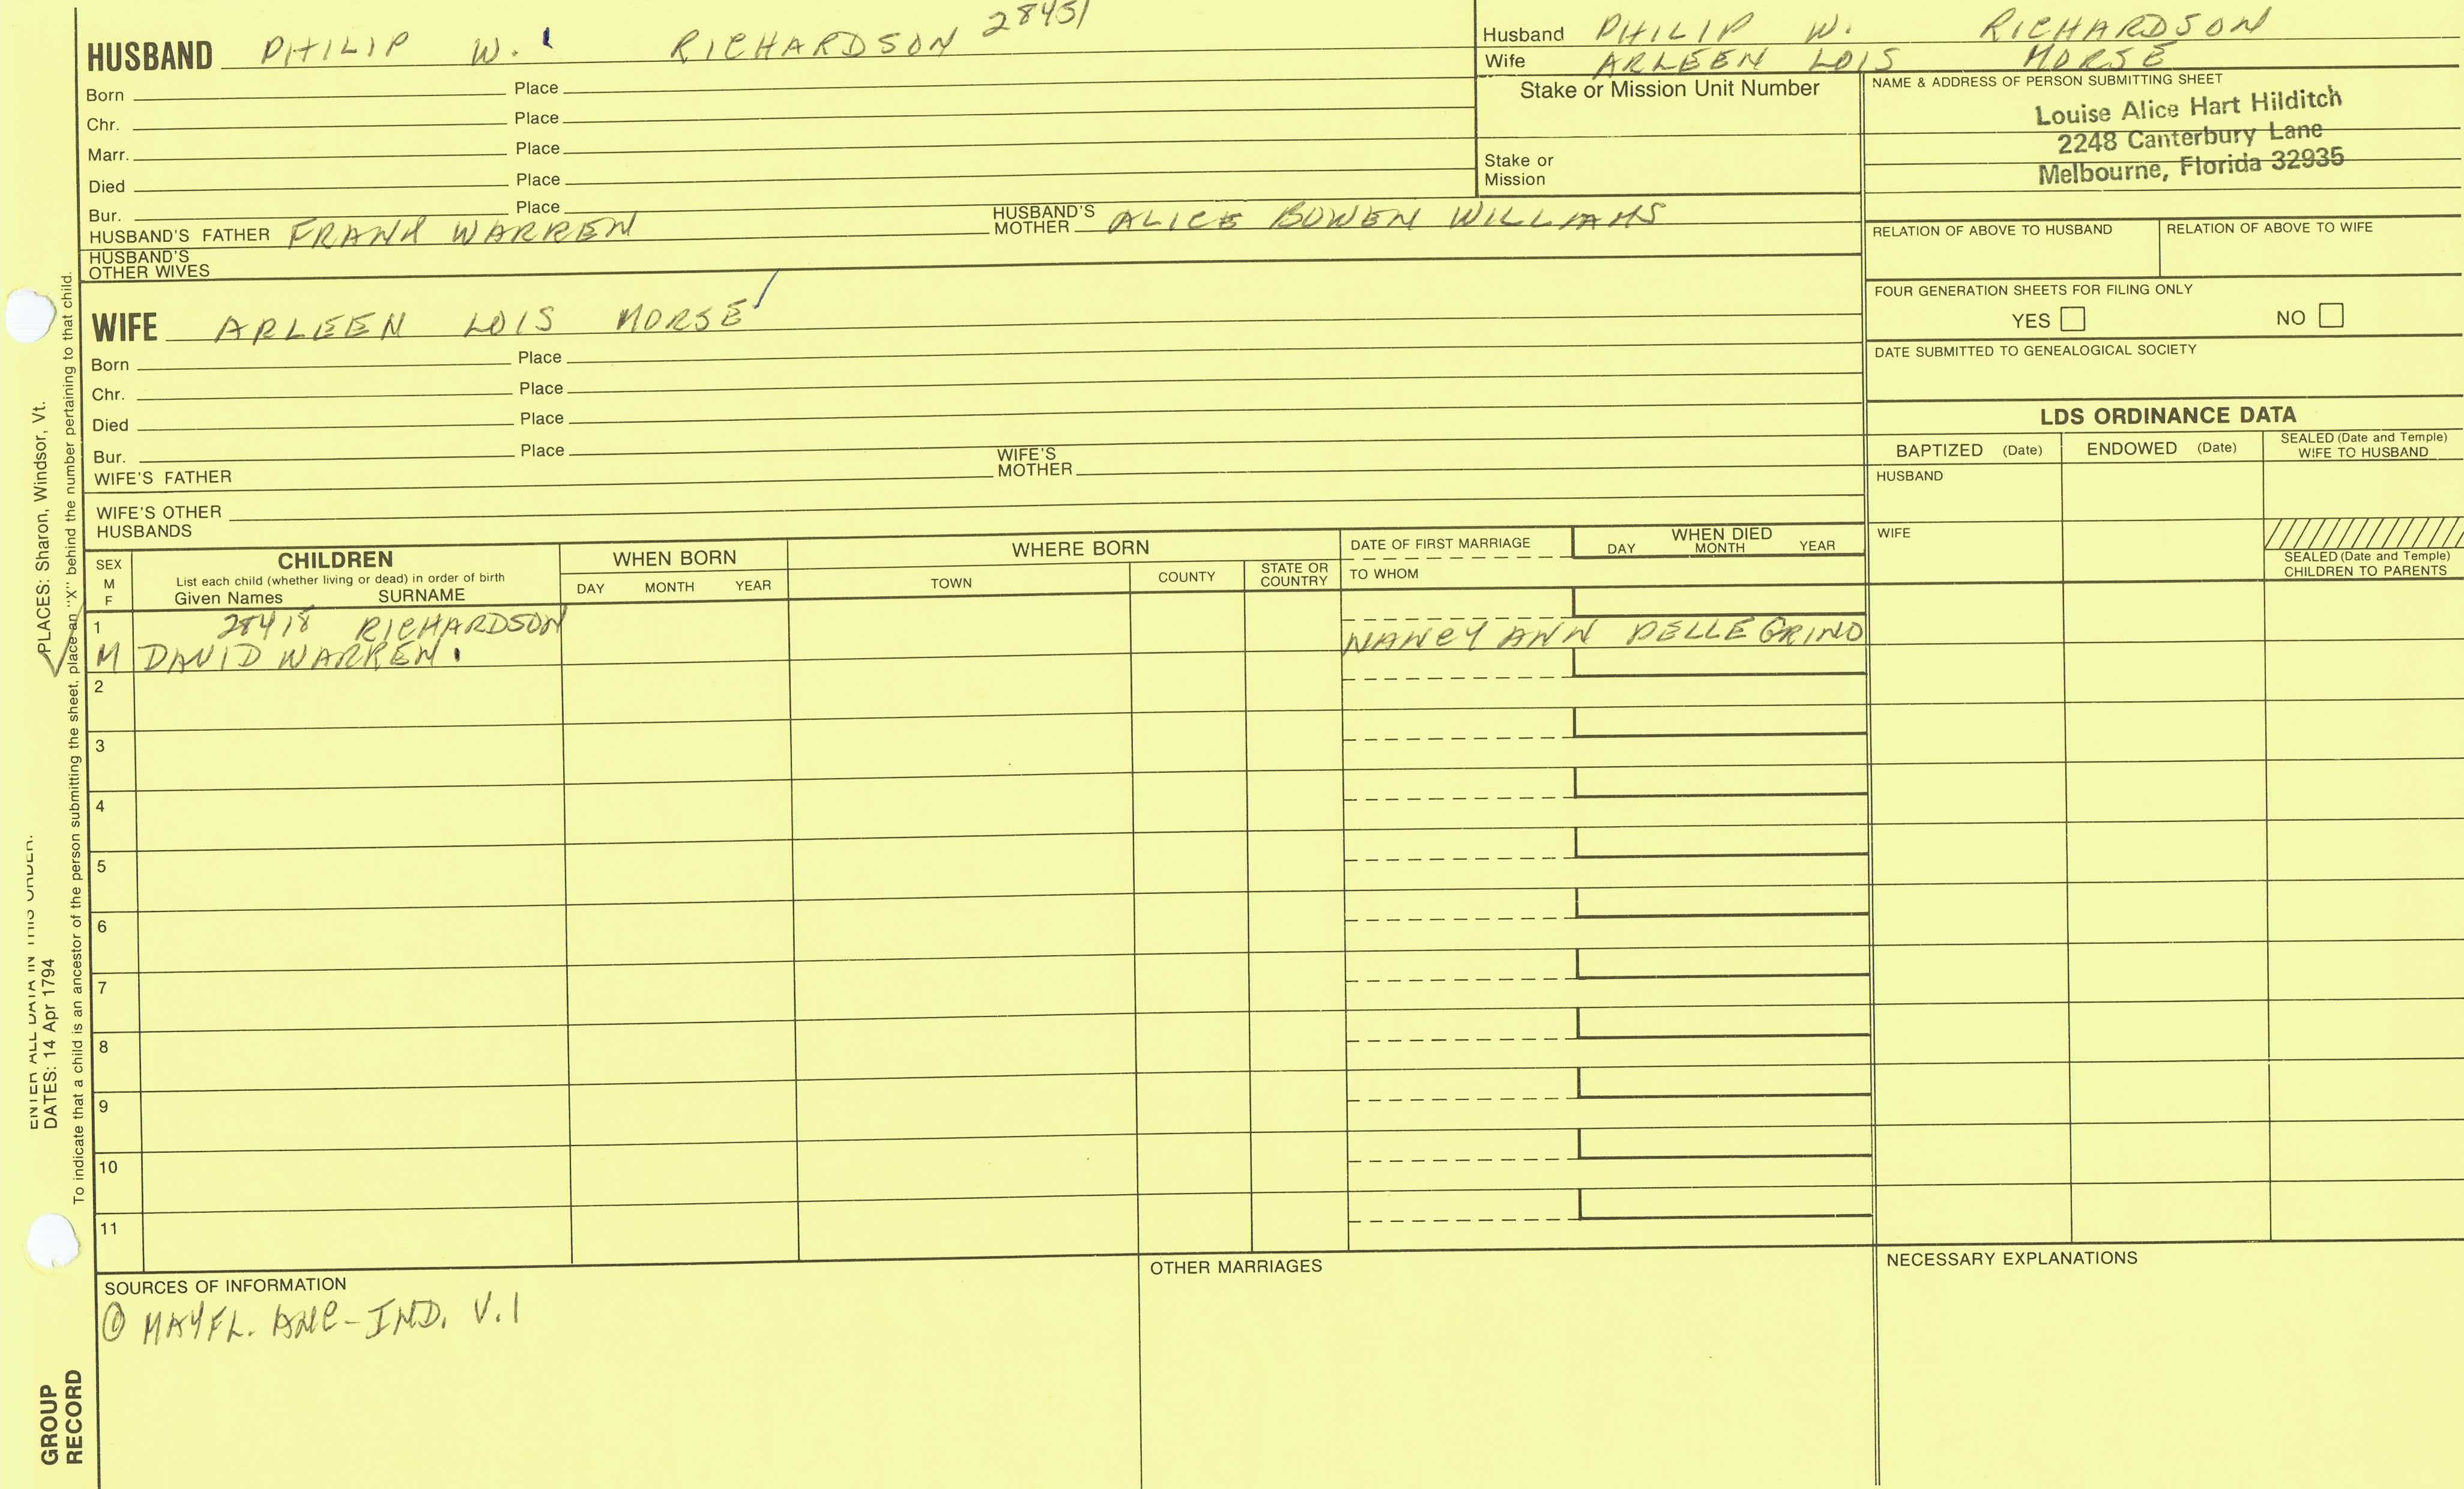 HUSBAND PHILIP W. RICHARDSON 28451
Born Place
Chr. Place
Marr. Place
Died Place
Bur. Place
HUSBAND'S FATHER FRANK WARREN HUSBAND'S MOTHER ALICE BOWEN WILLIAMS
HUSBAND'S OTHER WIVES
WIFE ARLEEN LOIS MORSE
Born Place
Chr. Place
Died Place
Bur. Place
WIFE'S FATHER WIFE'S MOTHER
WIFE'S OTHER HUSBANDS
Husband PHILIP W. RICHARDSON
Wife ARLEEN LOIS MORSE
Stake or Mission Unit Number
Stake or Mission
NAME & ADDRESS OF PERSON SUBMITTING SHEET
Louise Alice Hart Hilditch
2248 Canterbury Lane
Melbourne, Florida 32935
RELATION OF ABOVE TO HUSBAND RELATION OF ABOVE TO WIFE
FOUR GENERATION SHEETS FOR FILING ONLY
YES NO
DATE SUBMITTED TO GENEALOGICAL SOCIETY
LDS ORDINANCE DATA
BAPTIZED (Date) ENDOWED (Date) SEALED (Date and Temple) WIFE TO HUSBAND
HUSBAND
WIFE
SEALED (Date and Temple) CHILDREN TO PARENTS
SEX M F
CHILDREN
List each child (whether living or dead) in order of birth
Given Names SURNAME
WHEN BORN
DAY MONTH YEAR
WHERE BORN
TOWN COUNTY STATE OR COUNTRY
DATE OF FIRST MARRIAGE
TO WHOM
WHEN DIED
DAY MONTH YEAR
1 28418 RICHARDSON
M DAVID WARREN. NANCY ANN PELLEGRINO
2
3
4
5
6
7
8
9
10
11
SOURCES OF INFORMATION
① MAYFL. ANC-IND. V.1
OTHER MARRIAGES
NECESSARY EXPLANATIONS
ENTER ALL DATA IN THIS ORDER:
DATES: 14 Apr 1794
PLACES: Sharon, Windsor, Vt.
To indicate that a child is an ancestor of the person submitting the sheet, place an "X" behind the number pertaining to that child.
GROUP
RECORD